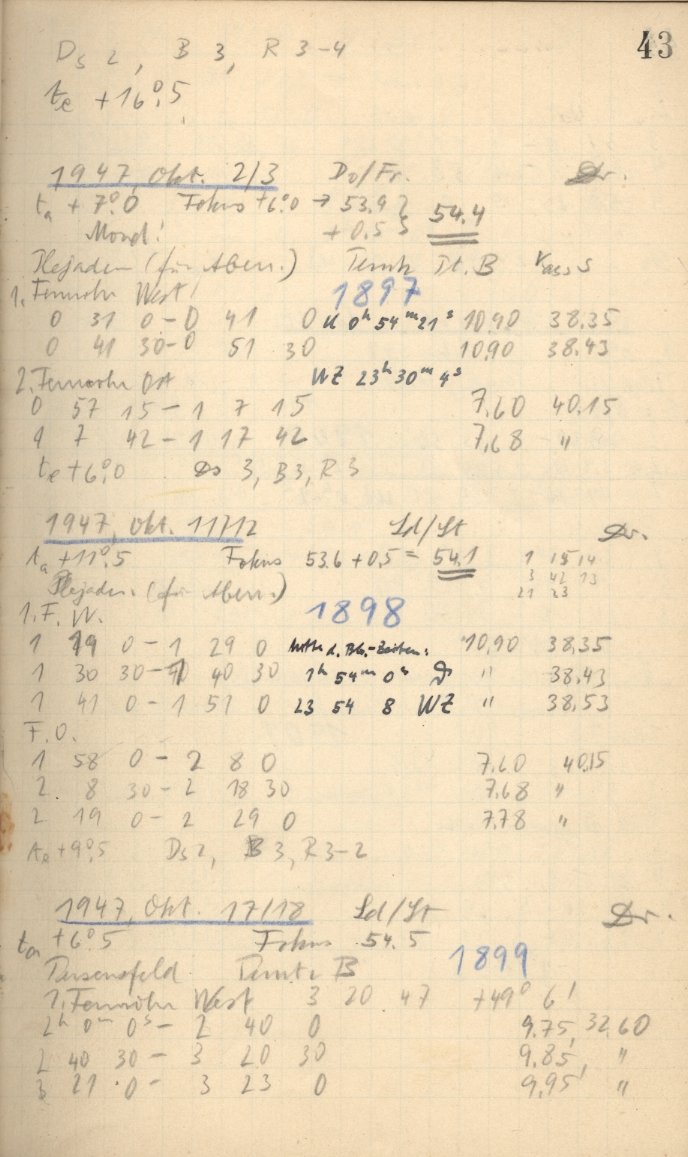 43
Ds 2, B 3, R 3-4
te +16°,5
1947, Okt. 2/3 Do/Fr. Dr.
ta +7°,0 Fokus +6°,0 → 53.9
Mond! + 0.5 54.4
Plejaden (für Aberr.) Temk Pl. B
1. Fernrohr West! 1897
0 31 0 - 0 41 0 U 0h 54m 21s 10,90 38,35
0 41 30 - 0 51 30 10,90 38,43
2. Fernrohr Ost WZ 23h 30m 4s
0 57 15 - 1 7 15 7,60 40,15
1 7 42 - 1 17 42 7,68 "
te +6°,0 Ds 3, B 3, R 3
1947, Okt. 11/12 Sd/St Dr.
ta +11°,5 Fokus 53.6 + 0,5 = 54.1 1 15 14
3 42 13
Plejaden (für Aberr.) 21 23
1. F. W. 1898
1 19 0 - 1 29 0 Mitte d. Bel.-Zeiten: 10,90 38,35
1 30 30 - 1 40 30 1h 54m 0s " 38,43
1 41 0 - 1 51 0 23 54 8 WZ " 38,53
F. O.
1 58 0 - 2 8 0 7,60 40,15
2 8 30 - 2 18 30 7,68 "
2 19 0 - 2 29 0 7,78 "
te +9°,5 Ds 2, B 3, R 3-2
1947, Okt. 17/18 Sd/St Dr.
ta +6°,5 Fokus 54.5
Perseusfeld B 1899
1. Fernrohr West 3 20 47 +49° 6'
2h 0m 0s - 2 40 0 9.75, 32,60
2 40 30 - 3 20 30 9.85, "
3 21 0 - 3 23 0 9,95 "